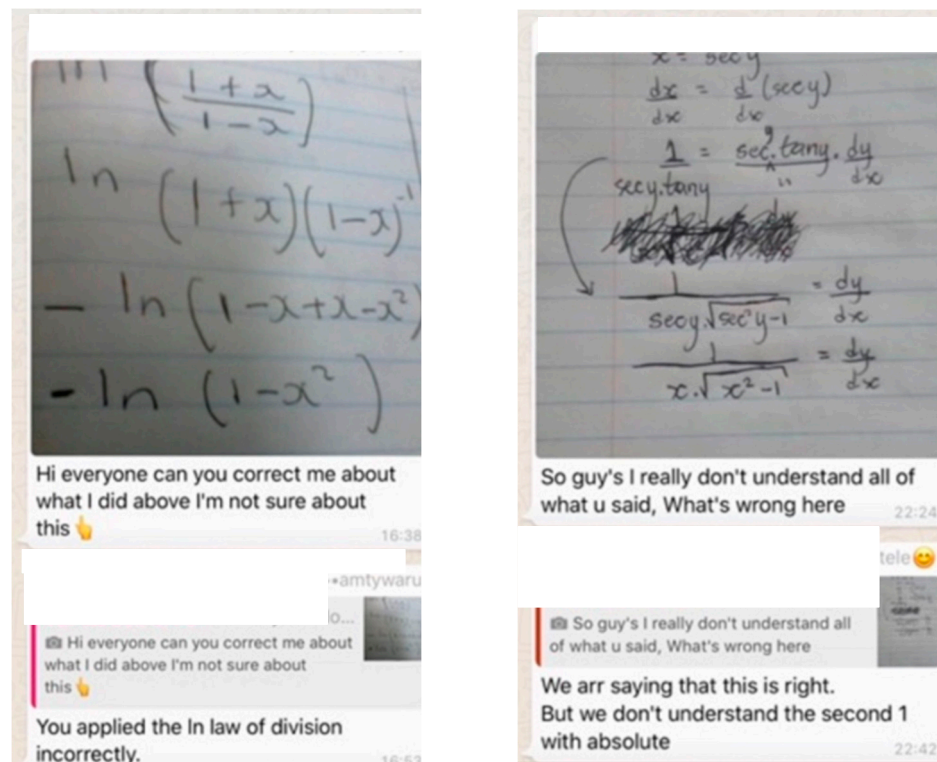 ln (1+x / 1-x)
ln (1+x)(1-x)⁻¹
- ln (1-x+x-x²)
- ln (1-x²)
Hi everyone can you correct me about
what I did above I'm not sure about
this👆
16:38
amtywaru
lo...
Hi everyone can you correct me about
what I did above I'm not sure about
this👆
You applied the ln law of division
incorrectly.
16:53
x = secy
dx/dx = d/dx (secy)
1/secy.tany = secy.tany . dy/dx
1/secy.√sec²y-1 = dy/dx
1/x.√x²-1 = dy/dx
So guy's I really don't understand all of
what u said, What's wrong here
22:24
tele😊
So guy's I really don't understand all
of what u said, What's wrong here
We arr saying that this is right.
But we don't understand the second 1
with absolute
22:42